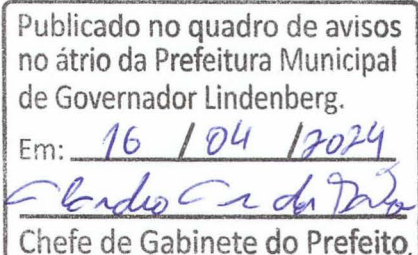 Publicado no quadro de avisos
no átrio da Prefeitura Municipal
de Governador Lindenberg.
Em: 16 / 04 / 2024
Chefe de Gabinete do Prefeito.